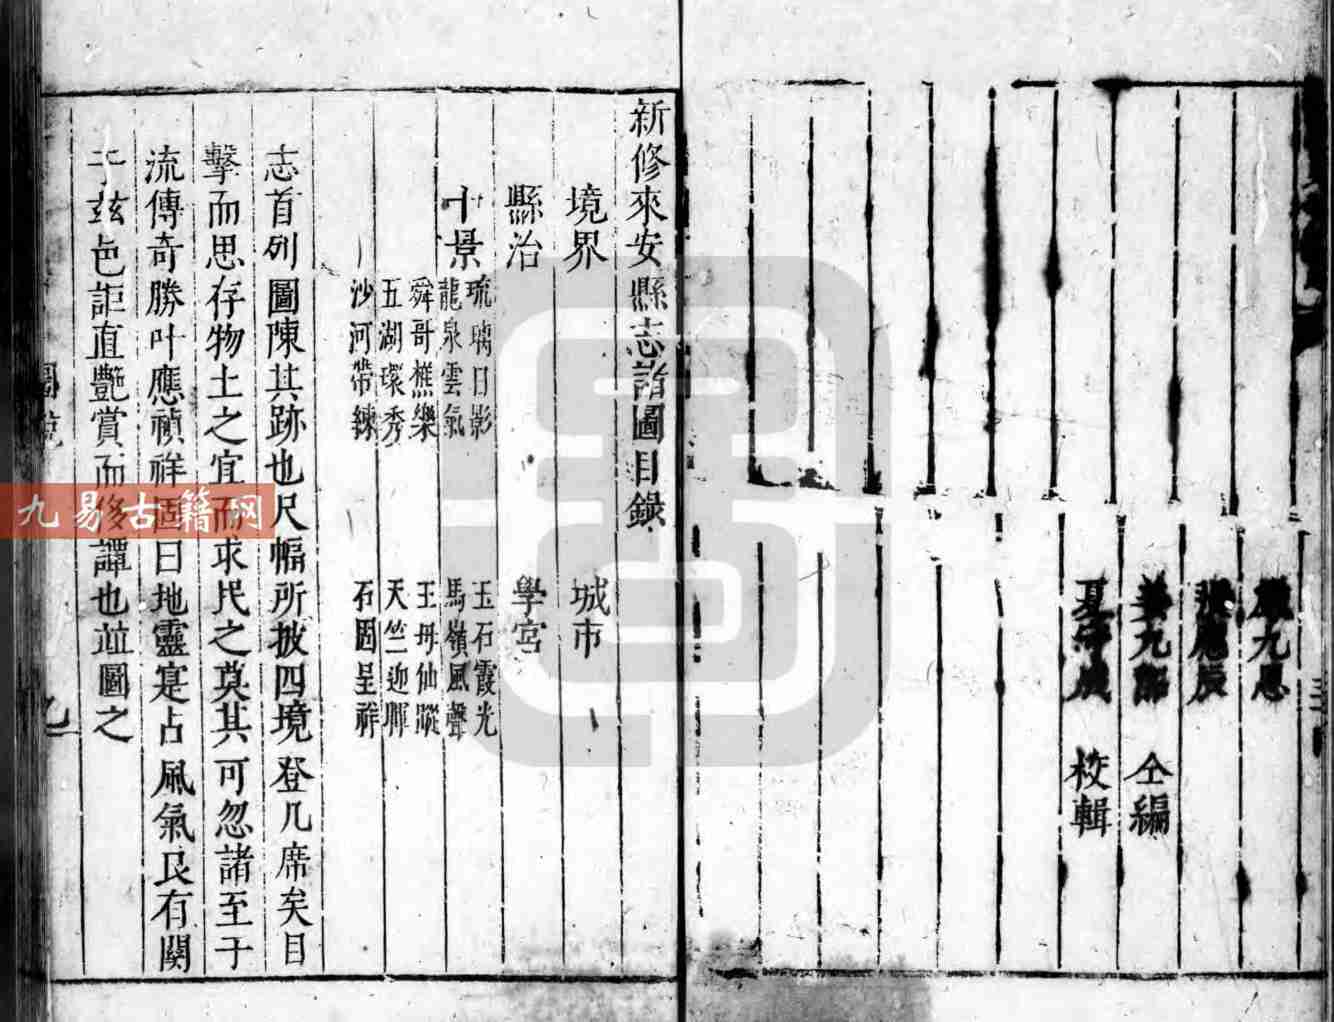 九思
辰
姜九韶 仝編
夏 校輯
新修來安縣志諸圖目錄
境界 城市
縣治 學宮
十景 琉璃日影 玉石霞光
龍泉雲氣 馬嶺風聲
舜哥樵樂 王母仙蹤
五湖環秀 天竺迎暉
沙河帶練 石固呈祥
志首列圖陳其跡也尺幅所披四境登几席矣目
擊而思存物土之宜而求民之莫其可忽諸至于
流傳奇勝叶應禎祥 曰地靈寔占風氣良有關
于玆邑詎直艷賞而侈譚也並圖之
九
九易古籍网